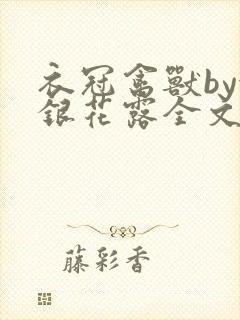 衣冠禽獸by
銀花露全文
藤彩香